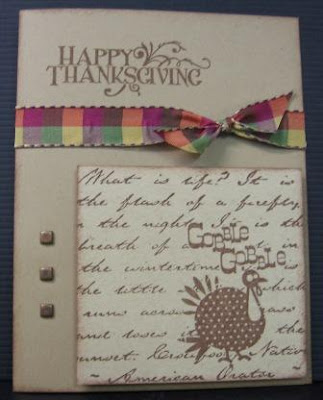 HAPPY
THANKSGIVING
What is life? It is
the flash of a firefly
in the night. It is the
breath of a
in
Gobble
Gobble
the wintertime. is
the little which
runs across ass
and loses it
sunset. Crowfoot, Nativ
~ American Orator ~